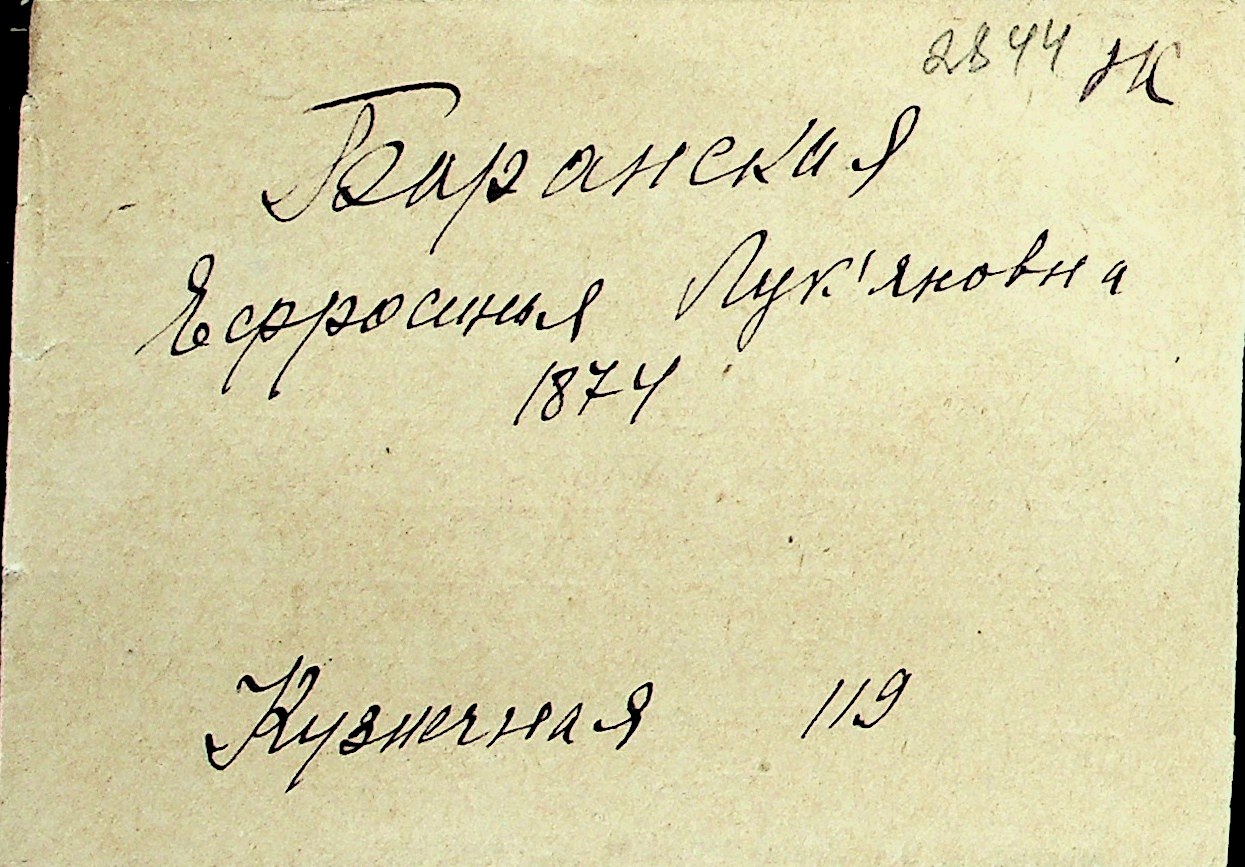 2844 Ж
Баранская
Ефросинья Лук'яновна
1874
Кузнечная 119